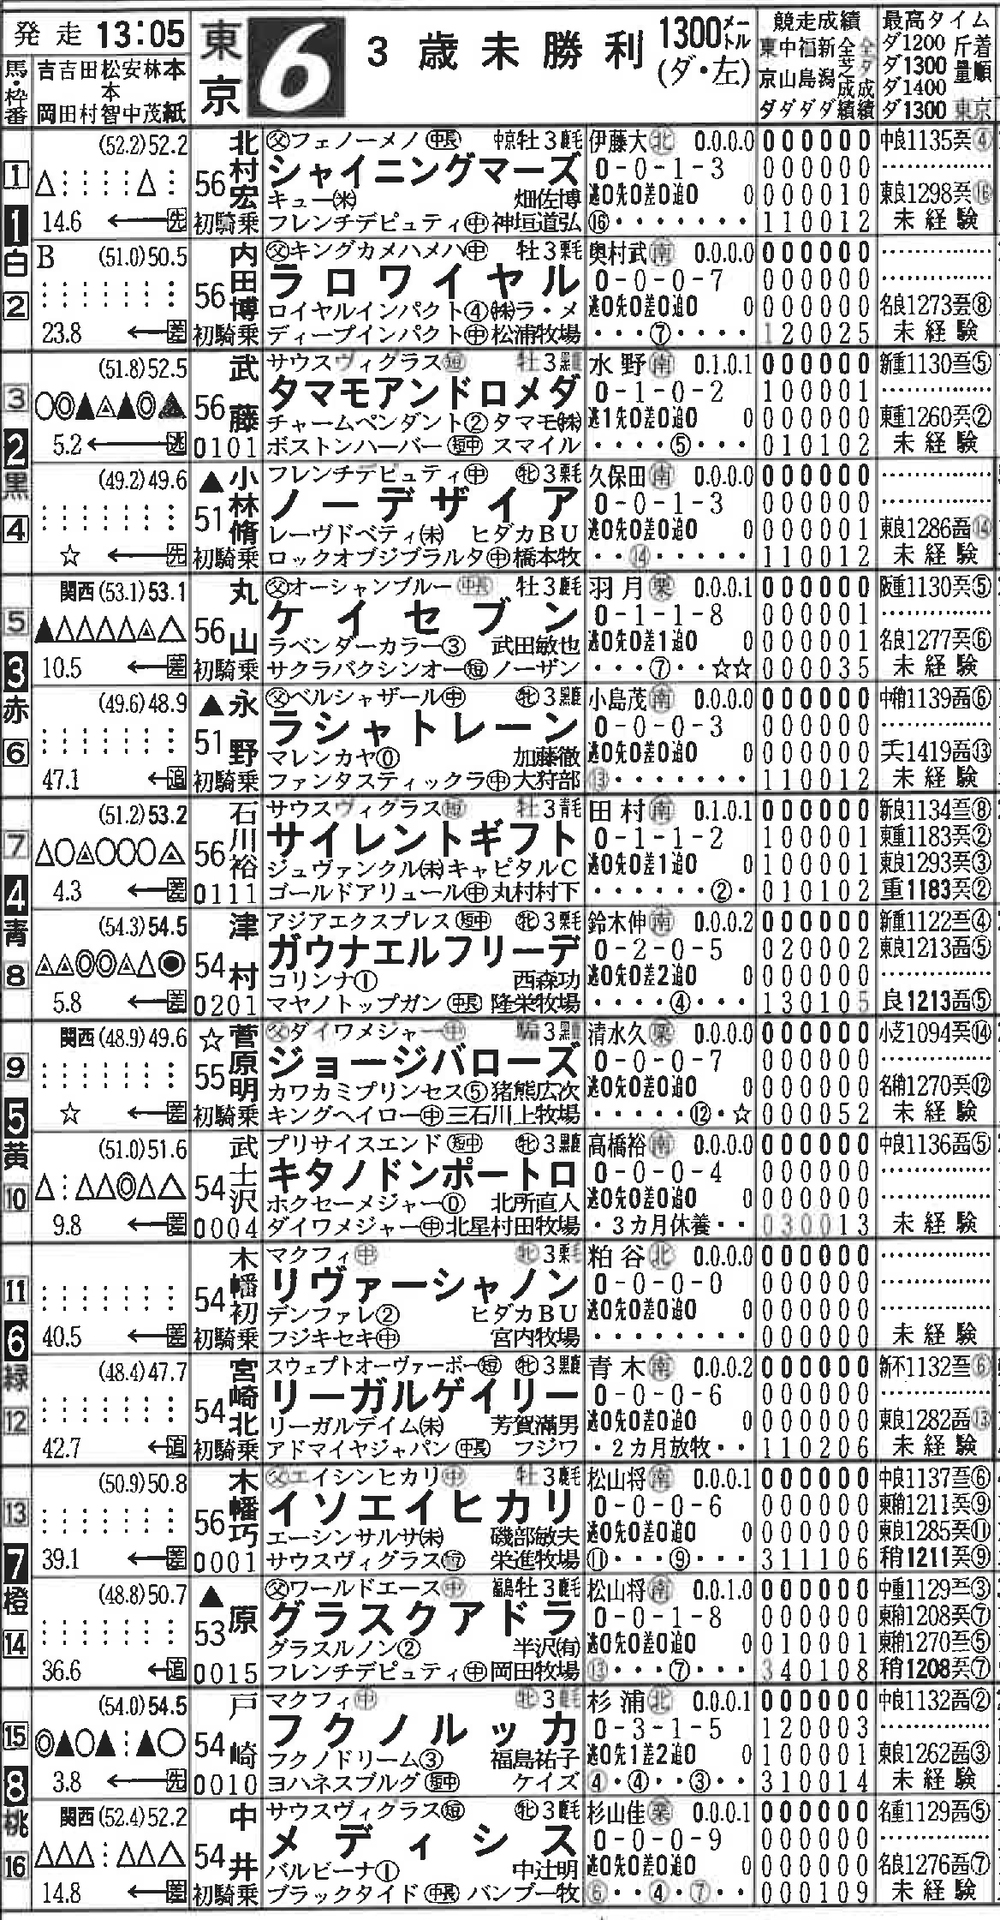 発走 13:05
東京 6
3歳未勝利
1300メートル
(ダ・左)
競走成績
東中福新全全
京山島潟芝ダ
ダダダダ成成
績績
最高タイム
ダ1200 斤着
ダ1300 量順
ダ1400
ダ1300 東京
馬・枠番
吉吉田松安林本
本
岡田村智中茂紙
1 白
1
(52.2)52.2
14.6 ←先
56 北村宏 初騎乗
父フェノーメノ 中長 牡3鹿毛
シャイニングマーズ
キュー(米) 畑佐博
フレンチデピュティ中 神垣道弘
伊藤大北 0.0.0.0
0-0-1-3
逃0先0差0追0 0
⑯・・・・・・・
000000
000000
000010
110012
中良1135 ④
東良1298 ⑯
未経験
2
B (51.0)50.5
23.8 ←差
56 内田博 初騎乗
父キングカメハメハ中 牡3栗毛
ラロワイヤル
ロイヤルインパクト④ ㈱ラ・メ
ディープインパクト中 松浦牧場
奥村武南 0.0.0.0
0-0-0-7
逃0先0差0追0 0
・・・⑦・・・・
000000
000000
000000
120025
名良1273 ⑧
未経験
2 黒
3
(51.8)52.5
○◎▲△▲◎▲
5.2 ←逃
56 武藤 0101
サウスヴィグラス短 牡3黒鹿
タマモアンドロメダ
チャームペンダント② タマモ㈱
ボストンハーバー短中 スマイル
水野南 0.1.0.1
0-1-0-2
逃1先0差0追0 0
・・・・⑤・・・
000000
100001
000000
010102
新重1130 ⑤
東重1260 ②
未経験
4
(49.2)49.6
☆ ←先
▲51 小林脩 初騎乗
フレンチデピュティ中 牝3栗毛
ノーデザイア
レーヴドベティ(未) ヒダカBU
ロックオブジブラルタ中 橋本牧
久保田南 0.0.0.0
0-0-1-3
逃0先0差0追0 0
・・⑭・・・・・
000000
000000
000001
110012
東良1286 ⑭
未経験
3 赤
5
関西(53.1)53.1
▲△△△△△△
10.5 ←差
56 丸山 初騎乗
父オーシャンブルー中長 牡3鹿毛
ケイセブン
ラベンダーカラー③ 武田敏也
サクラバクシンオー短 ノーザン
羽月栗 0.0.0.1
0-1-1-8
逃0先0差1追0 0
・・・⑦・・☆☆
000000
000001
000001
000035
阪重1130 ⑤
名良1277 ⑥
未経験
6
(49.6)48.9
47.1 ←追
▲51 永野 初騎乗
父ベルシャザール中 牝3黒鹿
ラシャトレーン
マレンカヤ⓪ 加藤徹
ファンタスティックラ中 大狩部
小島茂南 0.0.0.0
0-0-0-3
逃0先0差0追0 0
⑬・・・・・・・
000000
000000
000000
110012
中稍1139 ⑥
1419 ⑬
未経験
4 青
7
(51.2)53.2
△○△○○○△
4.3 ←差
56 石川裕 0111
サウスヴィグラス短 牡3青毛
サイレントギフト
ジュヴァンクル(未) キャピタルC
ゴールドアリュール中 丸村村下
田村南 0.1.0.1
0-1-1-2
逃0先0差1追0 0
・・・・・・②・
000000
100001
100001
010102
新良1134 ⑧
東重1183 ②
東良1293 ③
重1183 ②
8
(54.3)54.5
△△◎◎△△◉
5.8 ←差
54 津村 0201
アジアエクスプレス短中 牝3栗毛
ガウナエルフリーデ
コリンナ① 西森功
マヤノトップガン中長 隆栄牧場
鈴木伸南 0.0.0.2
0-2-0-5
逃0先0差2追0 0
・・・・④・・・
000000
020002
000000
130105
新重1122 ④
東良1213 ⑤
良1213 ⑤
5 黄
9
関西(48.9)49.6
☆ ←差
☆55 菅原明 初騎乗
父ダイワメジャー中 騸3黒鹿
ジョージバローズ
カワカミプリンセス⑤ 猪熊広次
キングヘイロー中 三石川上牧場
清水久栗 0.0.0.0
0-0-0-7
逃0先0差0追0 0
・・・・・⑫・☆
000000
000000
000000
000052
小芝1094 ⑭
名稍1270 ⑫
未経験
10
(51.0)51.6
△:△△◎△△
9.8 ←差
54 武士沢 0004
プリサイスエンド短中 牝3黒鹿
キタノドンポートロ
ホクセーメジャー⓪ 北所直人
ダイワメジャー中 北星村田牧場
高橋裕南 0.0.0.0
0-0-0-4
逃0先0差0追0 0
・3カ月休養・・
000000
000000
000000
030013
中良1136 ⑤
未経験
6 緑
11
40.5 ←差
54 木幡初 初騎乗
マクフィ中 牝3栗毛
リヴァーシャノン
デンファレ② ヒダカBU
フジキセキ中 宮内牧場
粕谷北 0.0.0.0
0-0-0-0
逃0先0差0追0 0
・・・・・・・・
000000
000000
000000
000000
未経験
12
(48.4)47.7
42.7 ←追
54 宮崎北 初騎乗
スウェプトオーヴァーボー短 牝3黒鹿
リーガルゲイリー
リーガルデイム(未) 芳賀満男
アドマイヤジャパン中長 フジワ
青木南 0.0.0.2
0-0-0-6
逃0先0差0追0 0
・2カ月放牧・・
000000
000000
000000
110206
新不1132 ⑥
東良1282 ⑬
未経験
7 橙
13
(50.9)50.8
39.1 ←差
56 木幡巧 0001
父エイシンヒカリ中 牡3鹿毛
イソエイヒカリ
エーシンサルサ(未) 磯部敏夫
サウスヴィグラス短 栄進牧場
松山将南 0.0.0.1
0-0-0-6
逃0先0差0追0 0
⑪・・・⑨・・・
000000
000000
000000
311106
中良1137 ⑥
東稍1211 ⑨
東良1285 ⑪
稍1211 ⑨
14
(48.8)50.7
36.6 ←追
▲53 原 0015
父ワールドエース中 牡3鹿毛
グラスクアドラ
グラスルノン② 半沢㈲
フレンチデピュティ中 岡田牧場
松山将南 0.0.1.0
0-0-1-8
逃0先0差0追0 0
⑬・・・⑦・・・
000000
000000
010001
340108
中重1129 ③
東稍1208 ⑦
東稍1270 ⑤
稍1208 ⑦
8 桃
15
(54.0)54.5
◎▲○▲:▲○
3.8 ←先
54 戸崎 0010
マクフィ中 牝3鹿毛
フクノルッカ
フクノドリーム③ 福島祐子
ヨハネスブルグ短中 ケイズ
杉浦北 0.0.0.1
0-3-1-5
逃0先1差2追0 0
④・④・・③・・
000000
120003
100001
310014
中良1132 ②
東良1262 ③
未経験
16
関西(52.4)52.2
△△△:△△△
14.8 ←差
54 中井 初騎乗
サウスヴィグラス短 牝3鹿毛
メディシス
バルビーナ① 中辻明
ブラックタイド中長 バンブー牧
杉山佳栗 0.0.0.1
0-0-0-9
逃0先0差0追0 0
⑥・・④・⑦・・
000000
000000
000000
000109
名重1129 ⑤
名良1276 ⑦
未経験